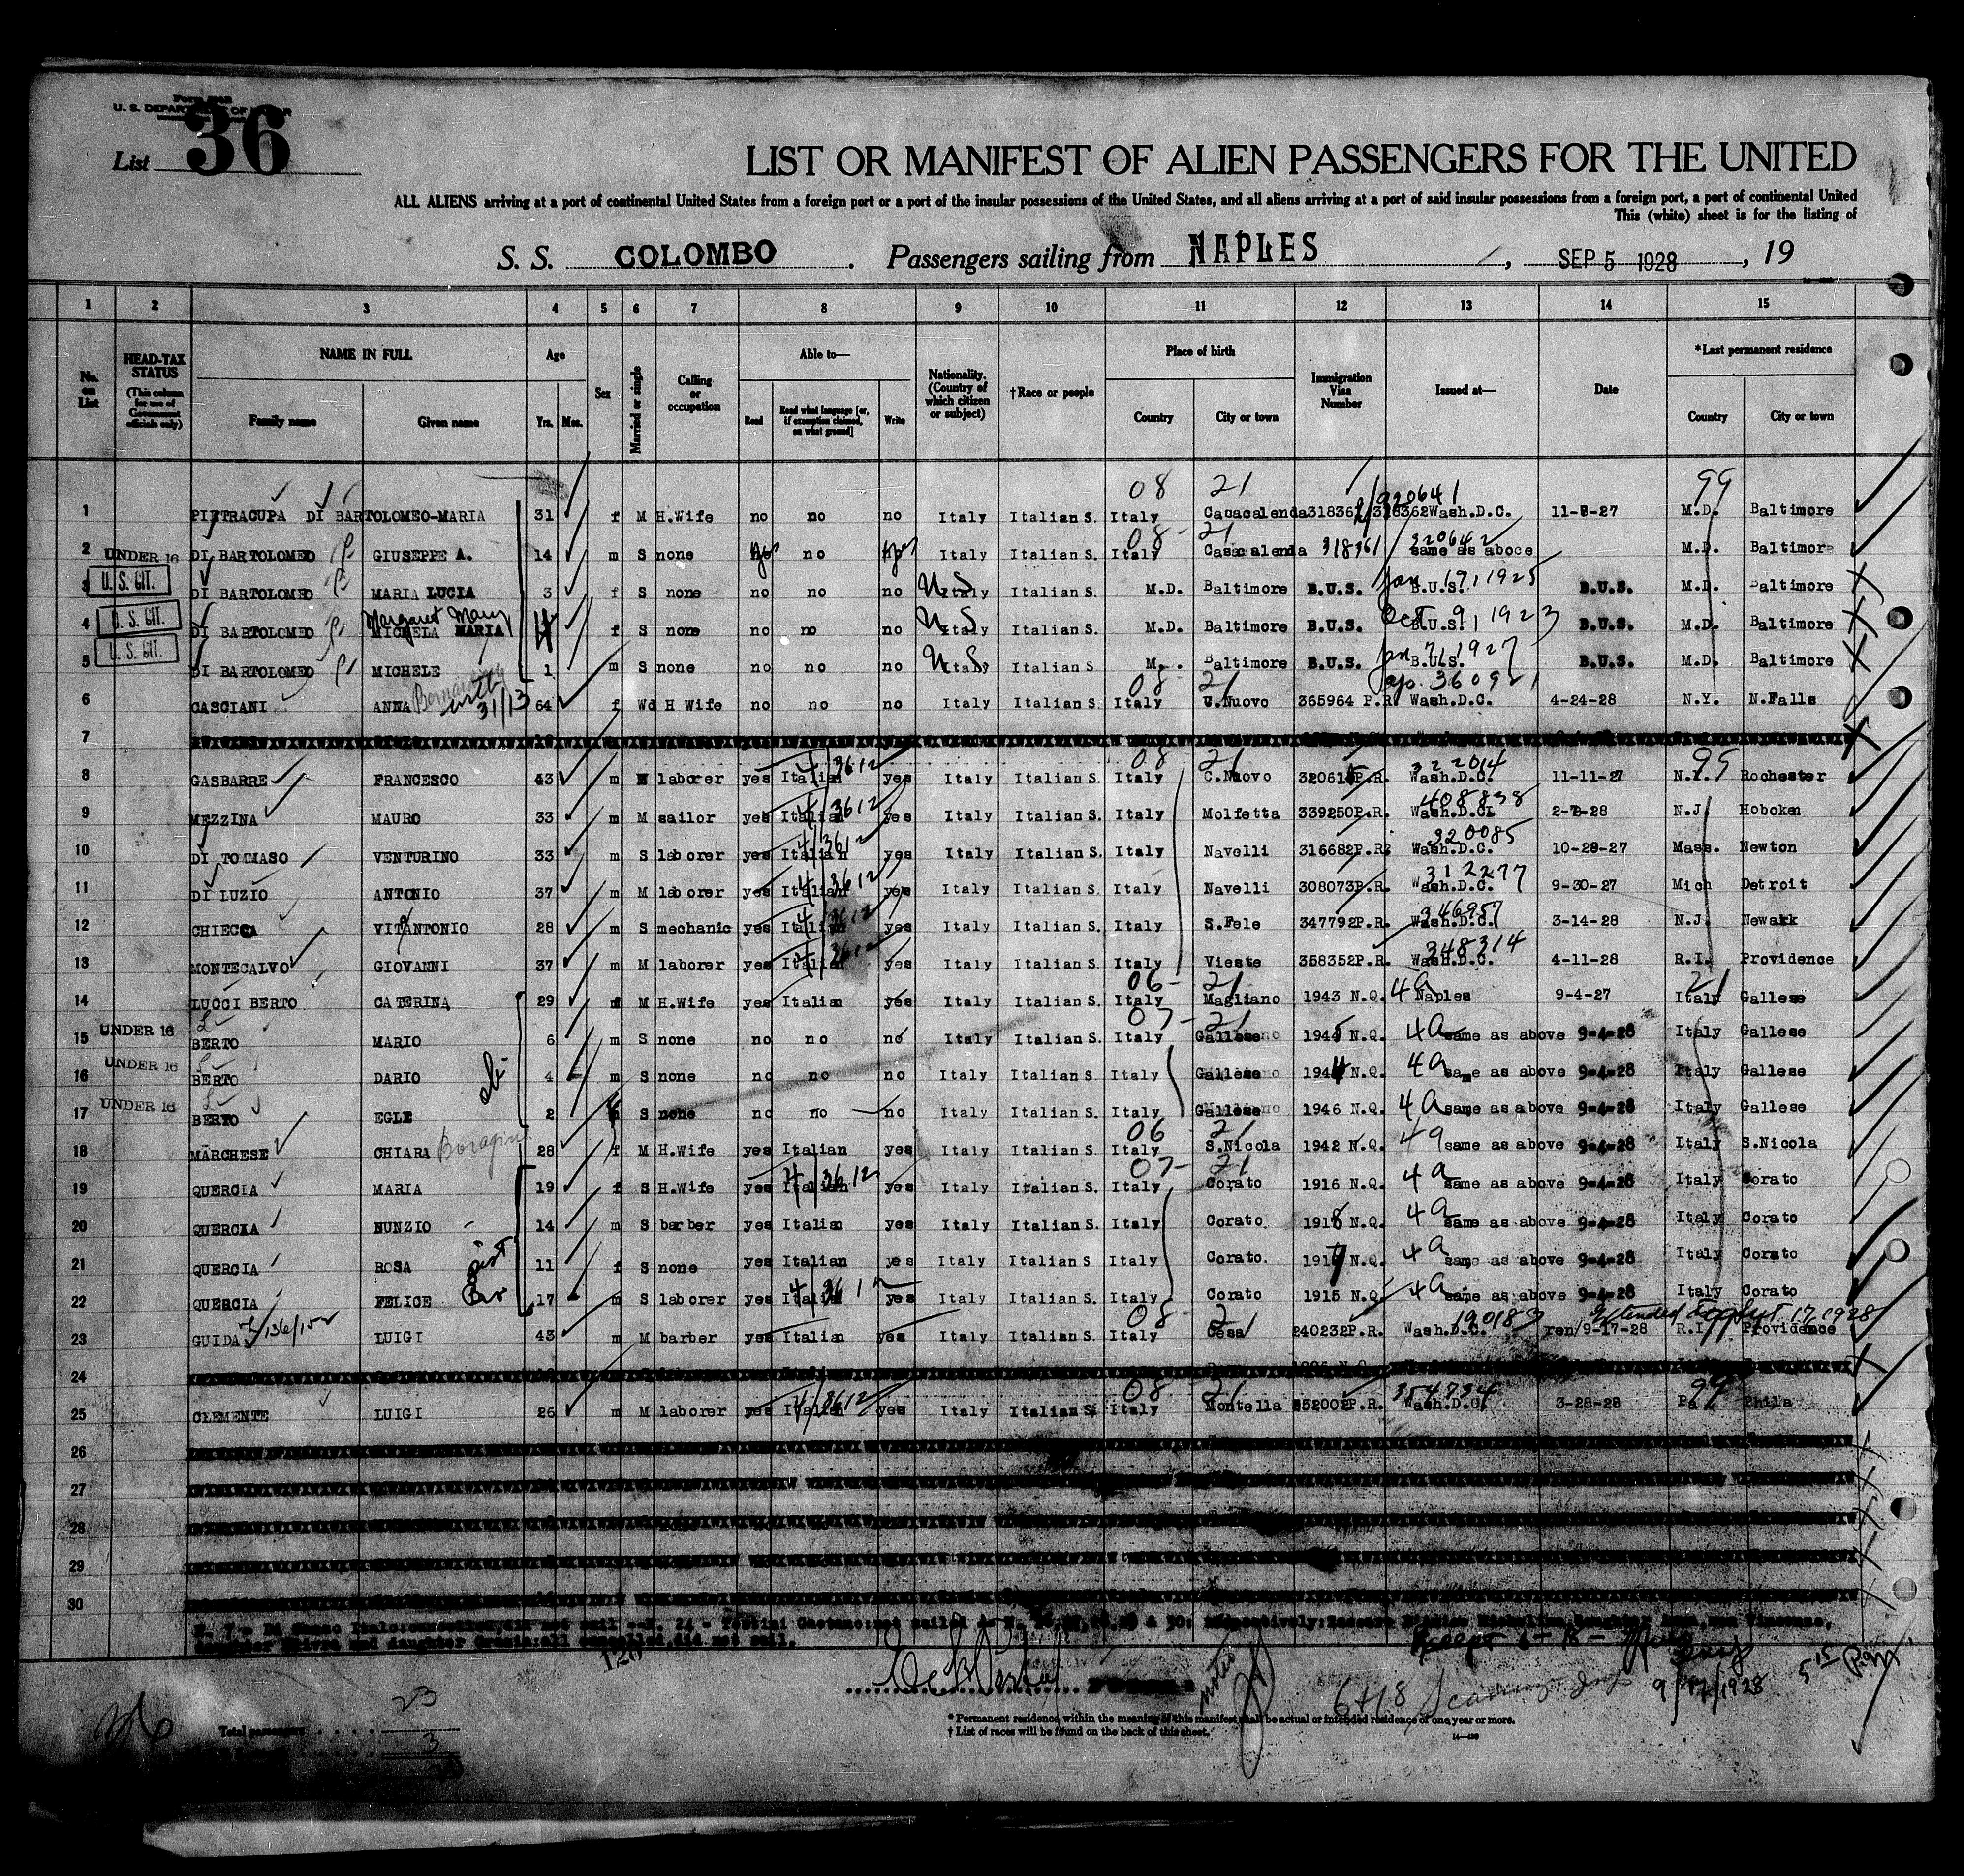 Form
U. S. DEPARTMENT OF LABOR
List 36
LIST OR MANIFEST OF ALIEN PASSENGERS FOR THE UNITED
ALL ALIENS arriving at a port of continental United States from a foreign port or a port of the insular possessions of the United States, and all aliens arriving at a port of said insular possessions from a foreign port, a port of continental United
This (white) sheet is for the listing of
S. S. COLOMBO. Passengers sailing from NAPLES, SEP 5 1928, 19
1 2 3 4 5 6 7 8 9 10 11 12 13 14 15
No. on List
HEAD-TAX STATUS (This column for use of Government officials only)
NAME IN FULL Family name Given name
Age Yrs. Mos.
Sex
Married or single
Calling or occupation
Able to— Read Read what language [or, if exemption claimed, on what ground] Write
Nationality. (Country of which citizen or subject)
†Race or people
Place of birth Country City or town
Immigration Visa Number
Issued at—
Date
*Last permanent residence Country City or town
08 21 320641 99
1 PIETRACUPA DI BARTOLOMEO-MARIA 31 f M H.Wife no no no Italy Italian S. Italy Casacalenda 318362 Wash.D.C. 11-8-27 M.D. Baltimore
08 - 21 320642
2 UNDER 16 DI BARTOLOMEO P. GIUSEPPE A. 14 m S none no no Italy Italian S. Italy Casacalenda 318361 same as aboce M.D. Baltimore
3 U. S. CIT. DI BARTOLOMEO P. MARIA LUCIA 3 f S none no no no U S Italy Italian S. M.D. Baltimore B.U.S. Jan 19, 1925 B.U.S. B.U.S. M.D. Baltimore
Margaret Mary
4 U. S. CIT. DI BARTOLOMEO P. MICHELA MARIA 4 f S none no no no U S Italy Italian S. M.D. Baltimore B.U.S. Oct. 9, 1923 B.U.S. B.U.S. M.D. Baltimore
5 U. S. CIT. DI BARTOLOMEO P. MICHELE 1 m S none no no no U S Italy Italian S Baltimore B.U.S. Jan 7, 1927 B.U.S. B.U.S. M.D. Baltimore
08 21 360921
6 CASCIANI ANNA 31/13 64 f Wd H Wife no no no Italy Italian S. Italy C.Nuovo 365964 P.R. Wash.D.C. 4-24-28 N.Y. N.Falls
7
4/3612 08 21 322014 99
8 GASBARRE FRANCESCO 43 m M laborer yes Italian yes Italy Italian S. Italy C.Nuovo P.R. Wash.D.C. 11-11-27 N.Y. Rochester
4/3612 408838
9 MEZZINA MAURO 33 m M sailor yes Italian yes Italy Italian S. Italy Molfetta 339250P.R. Wash.D.C. 2-7-28 N.J. Hoboken
4/3612 320085
10 DI TOMMASO VENTURINO 33 m S laborer yes Italian yes Italy Italian S. Italy Navelli 316682P.R. Wash.D.C. 10-28-27 Mass. Newton
4/3612 312277
11 DI LUZIO ANTONIO 37 m M laborer yes Italian yes Italy Italian S. Italy Navelli 308073P.R. Wash.D.C. 9-30-27 Mich Detroit
4/3612 346957
12 CHIECCA VITANTONIO 28 m S mechanic yes Italian yes Italy Italian S. Italy S.Fele 347792P.R. Wash.D.C. 3-14-28 N.J. Newark
4/3612 348314
13 MONTECALVO GIOVANNI 37 m M laborer yes Italian yes Italy Italian S. Italy Vieste 358352P.R. Wash.D.C. 4-11-28 R.I. Providence
06 - 21 21
14 LUCCI BERTO CATERINA 29 f M H.Wife yes Italian yes Italy Italian S. Italy Magliano 1943 N.Q. 4a Naples 9-4-27 Italy Gallese
07 - 21
15 UNDER 16 BERTO MARIO 6 m S none no no no Italy Italian S. Italy Gallese N.Q. 4a same as above 9-4-28 Italy Gallese
16 UNDER 16 BERTO DARIO 4 m S none no no no Italy Italian S. Italy Gallese 1944 N.Q. 4a same as above 9-4-28 Italy Gallese
17 UNDER 16 BERTO EGLE 2 f S none no no no Italy Italian S. Italy Gallese 1946 N.Q. 4a same as above 9-4-28 Italy Gallese
06 21
18 MARCHESE CHIARA 28 f M H.Wife yes Italian yes Italy Italian S. Italy S.Nicola 1942 N.Q. 4a same as above 9-4-28 Italy S.Nicola
4/3612 07 - 21
19 QUERCIA MARIA 19 f S H.Wife yes Italian yes Italy Italian S. Italy Corato 1916 N.Q. 4a same as above 9-4-28 Italy Corato
20 QUERCIA NUNZIO 14 m S barber yes Italian yes Italy Italian S. Italy Corato 1918 N.Q. 4a same as above 9-4-28 Italy Corato
21 QUERCIA ROSA 11 f S none yes Italian yes Italy Italian S. Italy Corato. 1917 N.Q. 4a same as above 9-4-28 Italy Corato
4/3612
22 QUERCIA FELICE 17 m S laborer yes Italian yes Italy Italian S. Italy Corato 1915 N.Q. 4a same as above 9-4-28 Italy Corato
08 - 21 190183 Extended to Sept. 17, 1928
23 GUIDA LUIGI 43 m M barber yes Italian yes Italy Italian S. Italy Cesa 240232P.R. Wash.D.C. ren/9-17-28 R.I. Providence
24
4/3612 08 - 21 354734 99
25 CLEMENTE LUIGI 26 m M laborer yes Italian yes Italy Italian S. Italy Montella 352002P.R. Wash.D.C. 3-28-28 Pa Phila
26
27
28
29
30
daughter and daughter all cancelled,did not sail.
120
9/17/1928
Total passengers 23
3
* Permanent residence within the meaning of this manifest shall be actual or intended residence of one year or more.
† List of races will be found on the back of this sheet.